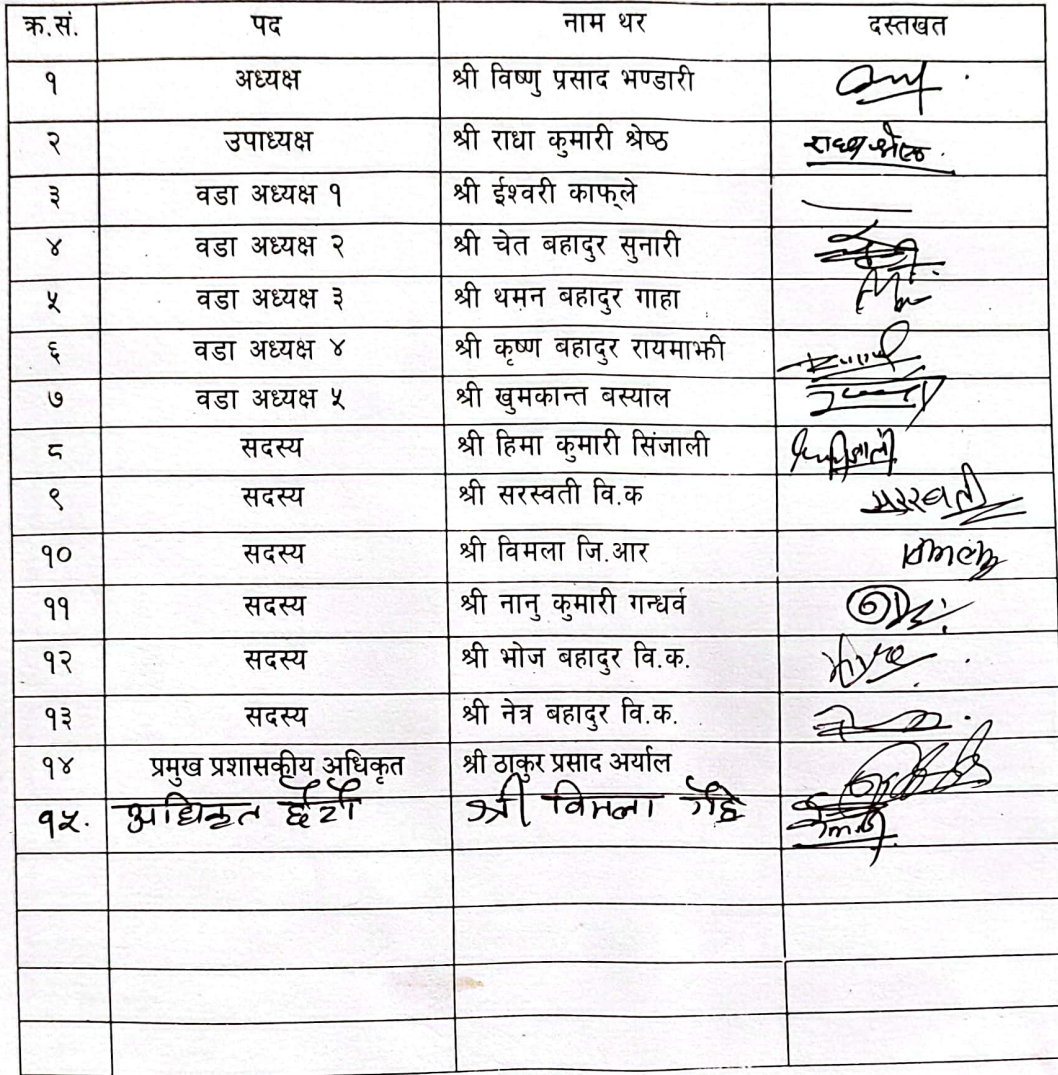 क्र.सं. पद नाम थर दस्तखत
१ अध्यक्ष श्री विष्णु प्रसाद भण्डारी
२ उपाध्यक्ष श्री राधा कुमारी श्रेष्ठ राधा श्रेष्ठ
३ वडा अध्यक्ष १ श्री ईश्वरी काफ्ले
४ वडा अध्यक्ष २ श्री चेत बहादुर सुनारी
५ वडा अध्यक्ष ३ श्री थमन बहादुर गाहा
६ वडा अध्यक्ष ४ श्री कृष्ण बहादुर रायमाझी
७ वडा अध्यक्ष ५ श्री खुमकान्त बस्याल
८ सदस्य श्री हिमा कुमारी सिंजाली
९ सदस्य श्री सरस्वती वि.क सरस्वती
१० सदस्य श्री विमला जि.आर
११ सदस्य श्री नानु कुमारी गन्धर्व
१२ सदस्य श्री भोज बहादुर वि.क.
१३ सदस्य श्री नेत्र बहादुर वि.क.
१४ प्रमुख प्रशासकीय अधिकृत श्री ठाकुर प्रसाद अर्याल
१५. अधिकृत छैटौ श्री विमला गैह्रे